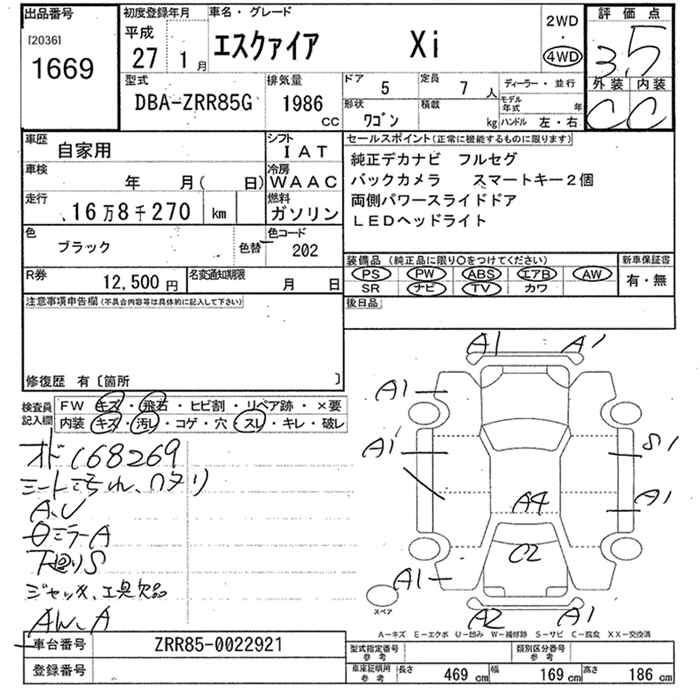 出品番号
[2036]
1669
初度登録年月
平成
27 1 月
車名・グレード
エスクァイア Xi
2WD
・
4WD
評価点
3.5
外装 内装
C C
型式
DBA-ZRR85G
排気量
1986
CC
ドア 5
定員 7 人
形状 ワゴン
積載 kg
ディーラー・並行
モデル年式 年
ハンドル 左・右
車歴 自家用
シフト IAT
車検 年 月( 日)
冷房 WAAC
走行 16万8千270 km
燃料 ガソリン
色 ブラック 色替
色コード 202
R券 12,500円
名変通知期限 月 日
セールスポイント(正常に機能するものに限ります)
純正デカナビ フルセグ
バックカメラ スマートキー2個
両側パワースライドドア
LEDヘッドライト
装備品(純正品に限り○をつけてください)
PS PW ABS エアB AW
SR ナビ TV カワ
新車保証書
有・無
後日品
注意事項申告欄(不具合内容等は具体的に記入して下さい)
修復歴 有〔箇所 〕
検査員記入欄
FW キズ・飛石・ヒビ割・リペア跡・×要
内装 キズ・汚レ・コゲ・穴・スレ・キレ・破レ
オド168269
シートヨゴれ、ワタリ
A、U
ミラーA
下廻りS
ジャッキ、工具欠品
AW、A
A1 A1
A1
A1 S1
A4 A1
C2
A1
A2 A1
スペア
A-キズ E-エクボ U-凹み W-補修跡 S-サビ C-腐食 XX-交換済
車台番号 ZRR85-0022921
登録番号
型式指定番号 参考
類別区分番号 参考
車庫証明用 参考
長さ 469 cm 幅 169 cm 高さ 186 cm